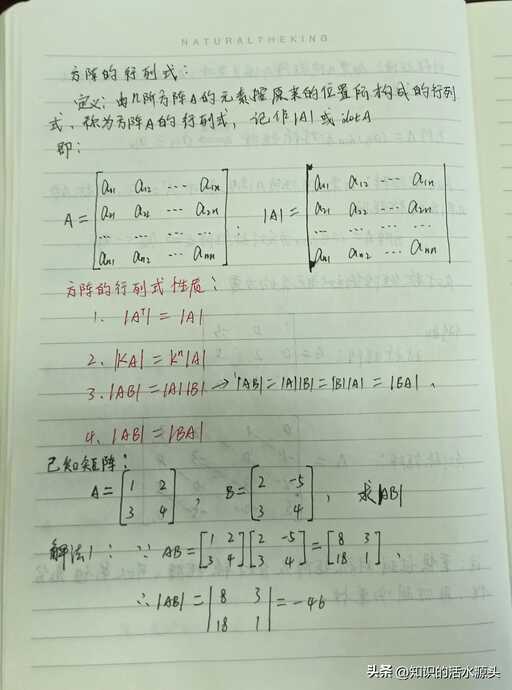 NATURALTHEKING
方阵的行列式：
定义：由n阶方阵A的元素按原来的位置所构成的行列
式，称为方阵A的行列式，记作|A|或detA
即：
A = [a11 a12 ⋯ a1n; a21 a22 ⋯ a2n; ⋯ ⋯ ⋯ ⋯; an1 an2 ⋯ ann] ; |A| = |a11 a12 ⋯ a1n; a21 a22 ⋯ a2n; ⋯ ⋯ ⋯ ⋯; an1 an2 ⋯ ann|
方阵的行列式性质：
1. |Aᵀ| = |A|
2. |KA| = kⁿ|A|
3. |AB| = |A||B| → |AB| = |A||B| = |B||A| = |BA|.
4. |AB| = |BA|
已知矩阵：
A = [1 2; 3 4]; B = [2 -5; 3 4], 求|AB|
解法1：∵ AB = [1 2; 3 4][2 -5; 3 4] = [8 3; 18 1],
∴ |AB| = |8 3; 18 1| = -46
头条 @知识的活水源头